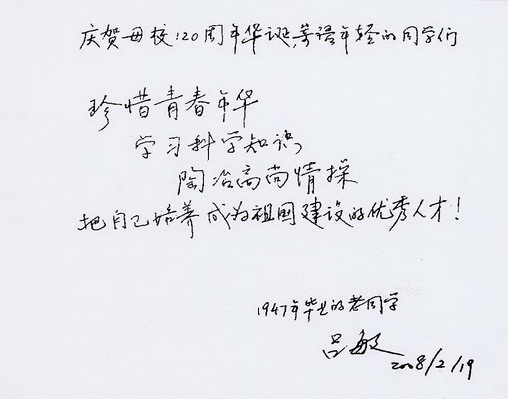 庆贺母校120周年华诞,寄语年轻的同学们
珍惜青春年华
学习科学知识,
陶冶高尚情操
把自己培养成为祖国建设的优秀人才!
1947年毕业的老同学
吕敏
2008/2/19